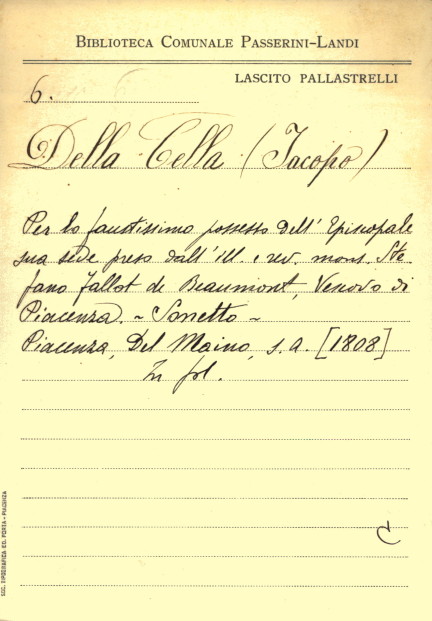 BIBLIOTECA COMUNALE PASSERINI-LANDI
LASCITO PALLASTRELLI
6.
Della Cella (Jacopo)
Per lo faustissimo possesso dell' Episcopale
sua sede preso dall' ill. e rev. mons. Ste
fano Fallot de Beaumont, Vescovo di
Piacenza. ~ Sonetto ~
Piacenza, Del Maino, s. a. [1808]
In fol.
C
SOC. TIPOGRAFICA ED. PORTA - PIACENZA